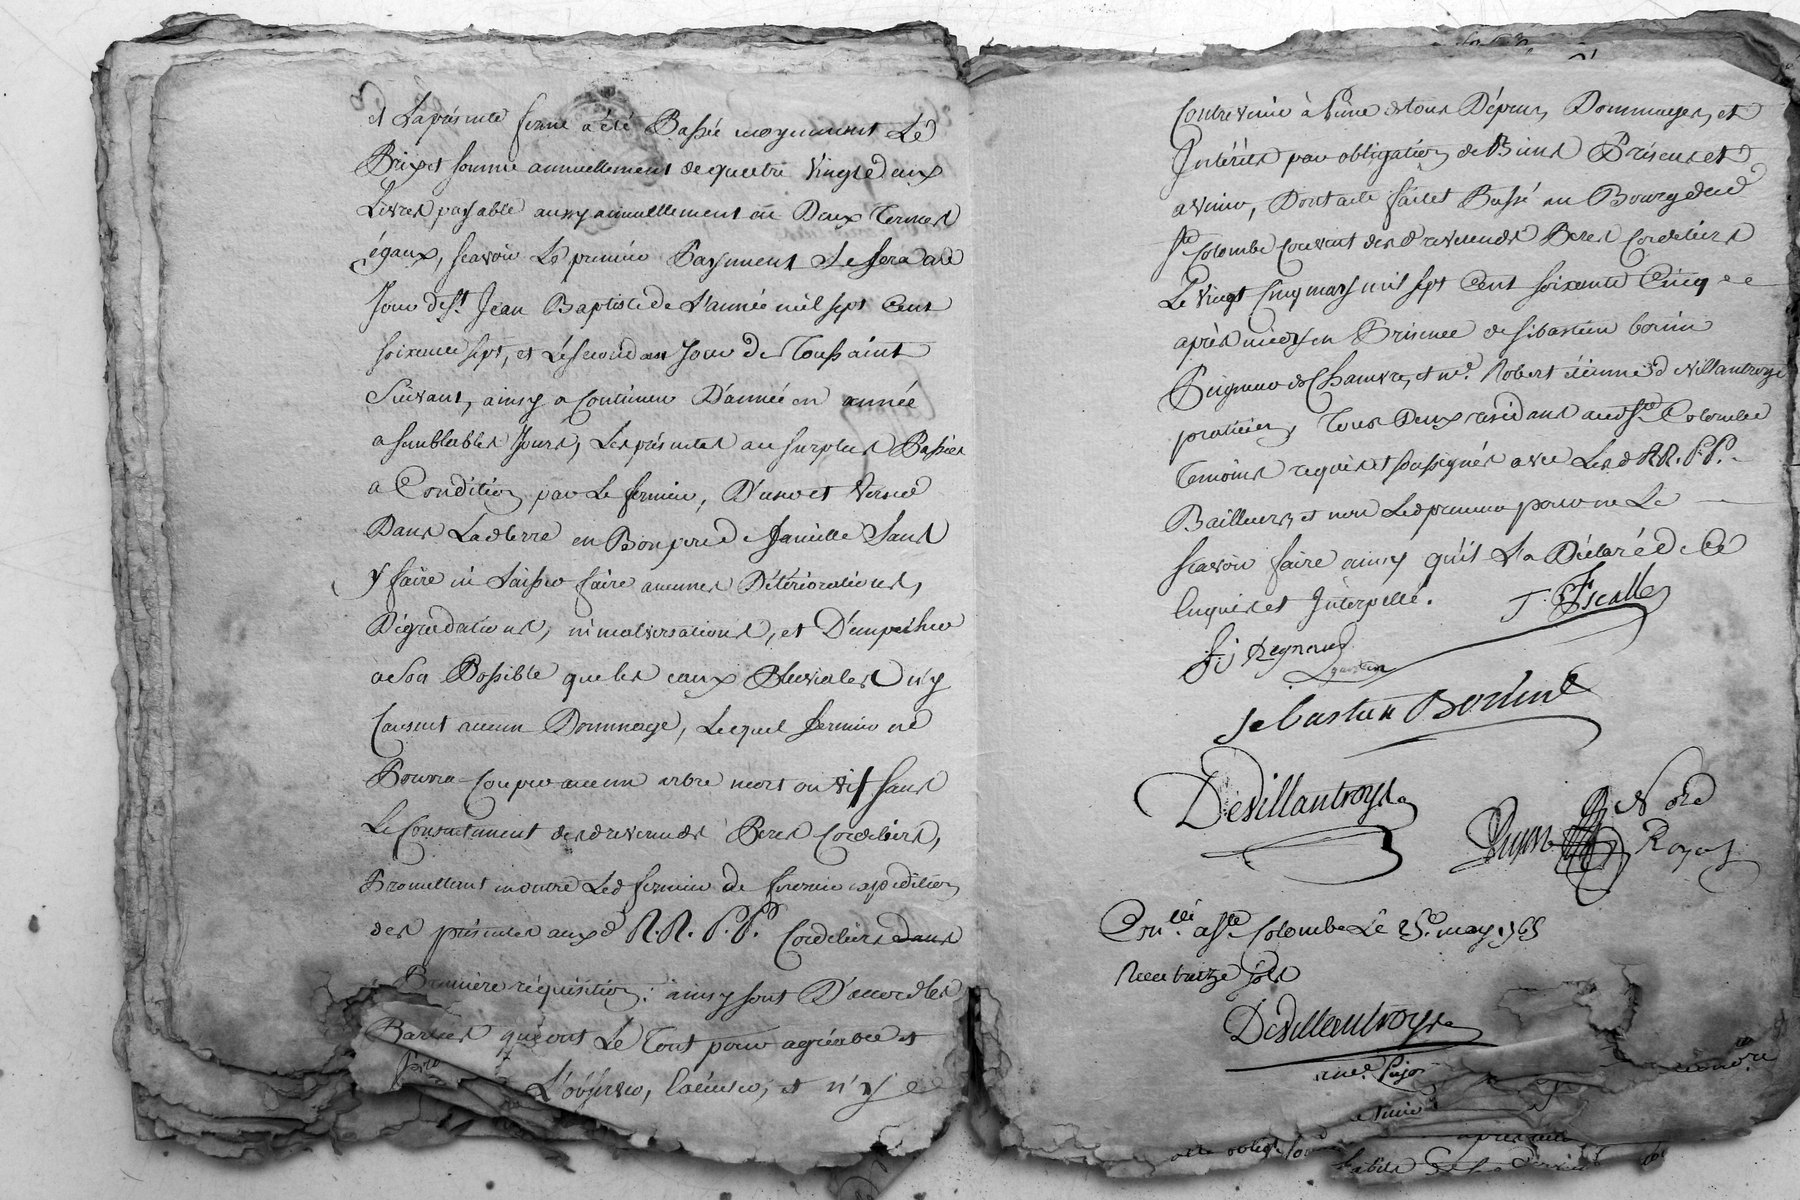 Et La présente ferme a été Passée moyennant Le
Prix et somme annuellement de quatre Vingt deux
Livres payable aussy annuellement en Deux Termes
égaux, scavoir Le premier Payement Se fera au
Jour de St. Jean Baptiste de L'année mil sept Cent
soixante sept, et Le second au Jour de Toussaint
Suivant, ainsy a Continuer D'année en année
a semblables Jours, Les présentes au surplus Passées
a Condition par Le fermier, D'user et Verser
Dans Lad. terre en Bon pere de famille Sans
y faire ni Laisser faire aucunes Détériorations,
Dégradations, ni malversations, et D'empecher
a Son Possible que les eaux Pluviales n'y
Causent aucun Dommage, Lequel fermier ne
Pourra Couper aucun arbre mort ou Vif sans
Le Consentement desd. reverends Peres Cordeliers,
Promettant en outre Led. fermier de fournir expédition
des présentes auxd. R.R. P.P. Cordeliers dans
Premiere réquisition: ainsy sont D'accord les
Parties qui ont Le Tout pour agréable et
L'observer, Exécuter, et n'y
Contrevenir à Peine de tous Dépens, Dommages, et
Intérêts par obligation de Biens Présens et
a Venir, Dont acte fait et Passé au Bourg dud.
Ste Colombe Couvent desd. reverends Peres Cordeliers
Le Vingt Cinq mars mil sept Cent soixante Cinq
après midy en Présence de Sébastien bonin
Peigneur de Chanvre, et Me. Robert étienne deVillantroys
praticien, Tous Deux residans aud. Ste Colombe
Temoins requis et soussignés avec Lesd. R.R. P.P.
Bailleurs, et non Led. preneur pour ne Le
scavoir faire ainsy qu'il L'a Déclaré de Ce
Enquis et Interpellé. Escalle
Regnaud
gardien
sebastien Bonin
DeVillantroys
Pujon No.re
Royal
Con.llé a Ste Colombe Le 25. may 1765
Reçu treize sols
DeVillantroys
Pujon